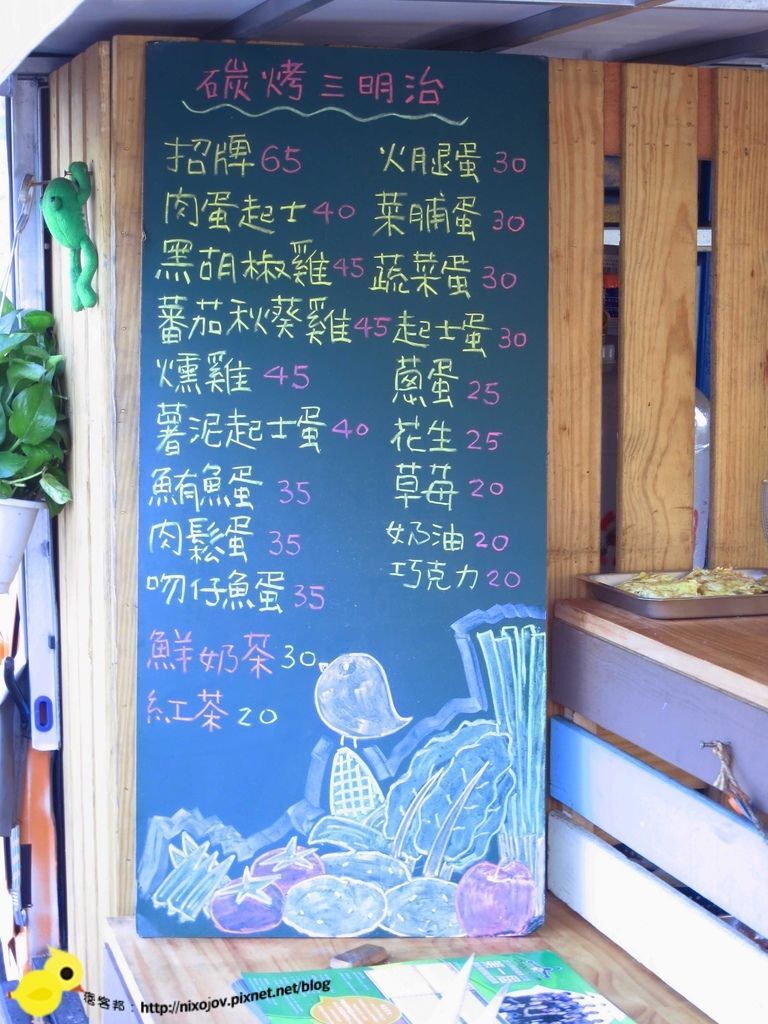 碳烤三明治
招牌 65
肉蛋起士 40
黑胡椒雞 45
蕃茄秋葵雞 45
燻雞 45
薯泥起士蛋 40
鮪魚蛋 35
肉鬆蛋 35
吻仔魚蛋 35
鮮奶茶 30
紅茶 20
火腿蛋 30
菜脯蛋 30
蔬菜蛋 30
起士蛋 30
蔥蛋 25
花生 25
草莓 20
奶油 20
巧克力 20
痞客邦：http://nixojov.pixnet.net/blog